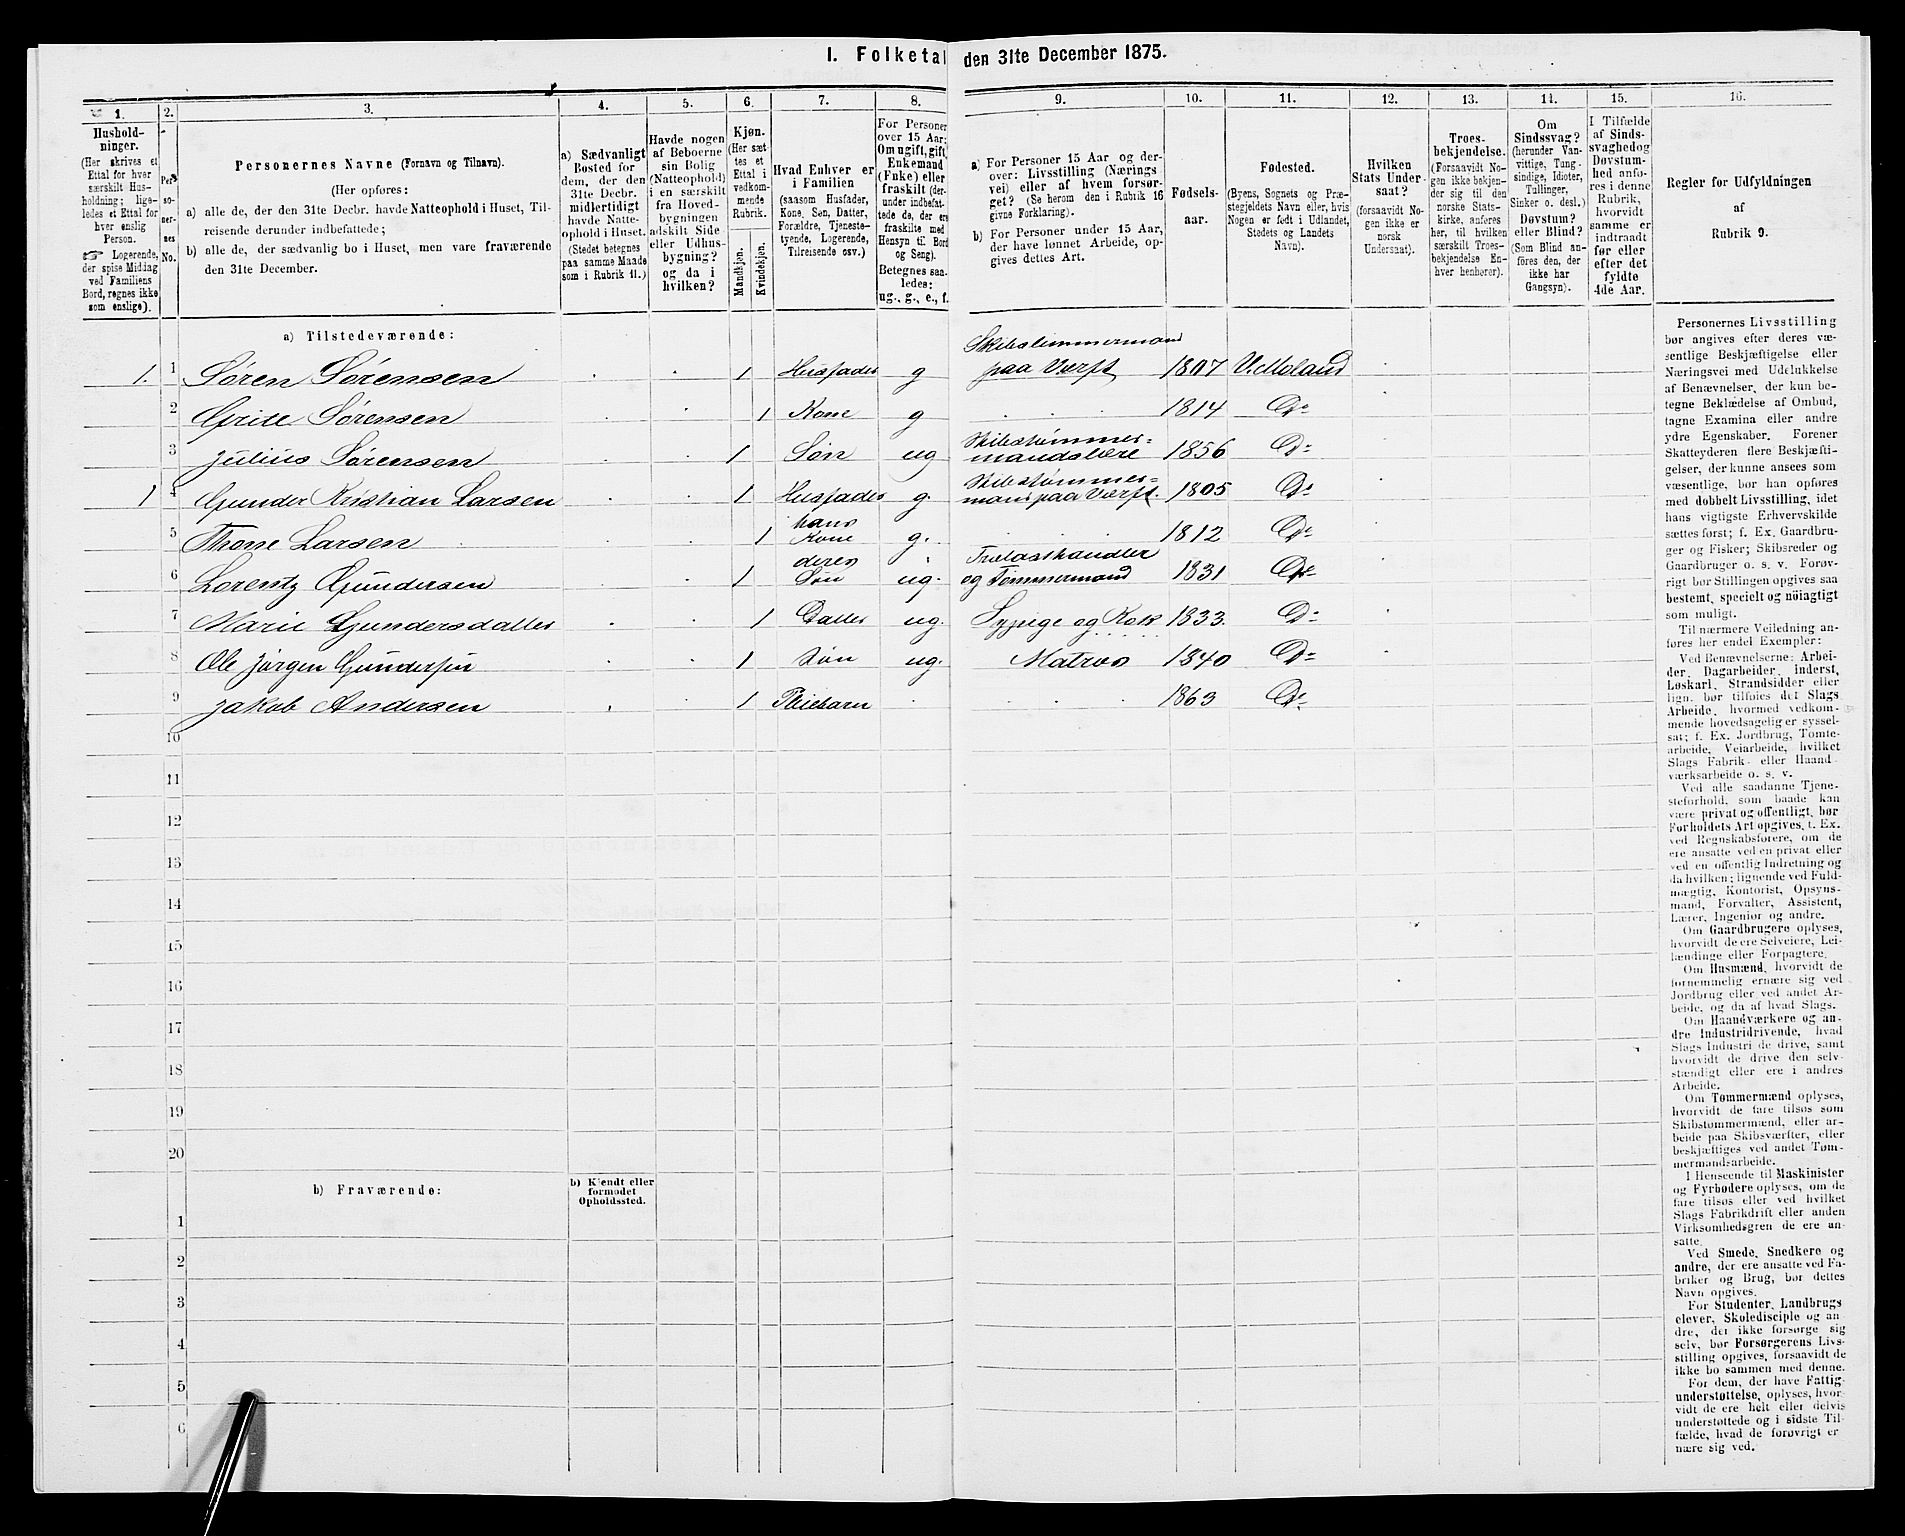 I. Folketal den 31te December 1875.
1. 2. 3. 4. 5. 6. 7. 8. 9. 10. 11. 12. 13. 14. 15. 16.
Hushold-
ninger.
(Her skrives et
Ettal for hver
særskilt Hus-
holdning; lige-
ledes et Ettal for
hver enslig
Person.
☞ Logerende,
der spise Middag
ved Familiens
Bord, regnes ikke
som enslige).
Per-
so-
ner-
nes
No.
Personernes Navne (Fornavn og Tilnavn).
(Her opføres:
a) alle de, der den 31te Decbr. havde Natteophold i Huset, Til-
reisende derunder indbefattede;
b) alle de, der sædvanlig bo i Huset, men vare fraværende
den 31te December.
a) Sædvanligt
Bosted for
dem, der den
31te Decbr.
midlertidigt
havde Natte-
ophold i Huset.
(Stedet betegnes
paa samme Maade
som i Rubrik 11.)
Havde nogen
af Beboerne
sin Bolig
(Natteophold)
i en særskilt
fra Hoved-
bygningen
adskilt Side
eller Udhus-
bygning?
og da i
hvilken?
Kjøn.
(Her sæt-
tes et
Ettal i
vedkom-
mende
Rubrik.
Mandkjøn.
Kvindekjøn.
Hvad Enhver er
i Familien
(saasom Husfader,
Kone, Søn, Datter,
Forældre, Tjeneste-
tyende, Logerende,
Tilreisende osv.)
For Personer
over 15 Aar:
Om ugift, gift,
Enkemand
(Enke) eller
fraskilt (der-
under indbefat-
tede de, der ere
fraskilte med
Hensyn til Bord
og Seng).
Betegnes saa-
ledes:
ug., g., e., f.
a) For Personer 15 Aar og der-
over: Livsstilling (Nærings-
vei) eller af hvem forsør-
get. (Se herom den i Rubrik 16
givne Forklaring).
b) For Personer under 15 Aar,
der have lønnet Arbeide, op-
gives dettes Art.
Fødsels-
aar.
Fødested.
(Byens, Sognets og Præ-
stegjeldets Navn eller, hvis
Nogen er født i Udlandet,
Stedets og Landets
Navn).
Hvilken
Stats Under-
saat?
(forsaavidt No-
gen ikke er
norsk
Undersaat).
Troes-
bekjendelse.
(Forsaavidt No-
gen ikke bekjen-
der sig til den
norske Stats-
kirke, anføres
her, til hvilken
særskilt Troes-
bekjendelse En-
hver henhører).
Om
Sindssvag?
(herunder Van-
vittige, Tung-
sindige, Idioter,
Tullinger,
Sinker o. desl.)
Døvstum?
eller Blind?
(Som Blind an-
føres den, der
ikke har
Gangsyn).
I Tilfælde
af Sinds-
svaghed og
Døvstum-
hed anfø-
res i denne
Rubrik,
hvorvidt
samme er
indtraadt
før eller
efter det
fyldte
4de Aar.
Regler for Udfyldningen
af
Rubrik 9.
a) Tilstedeværende:
1. 1 Søren Sørensen 1 Husfader g Skibstimmermand paa Værft 1807 V. Moland
2 Grite Sørensen 1 Kone g 1814 Do
3 Julius Sørensen 1 Søn ug Skibstømmer-mandslære 1856 Do
1 4 Gunder Kristian Larsen 1 Husfader g. Skibstømmer-mand paa Værft. 1805 Do
5 Thone Larsen 1 hans Kone g. 1812 Do
6 Lorentz Gundersen 1 deres Søn ug. Trælasthandler og Tømmermand 1831 Do
7 Marie Gundersdatter 1 Datter ug. Sypige og Kok 1833. Do
8 Ole Jørgen Gundersen 1 Søn ug. Matros 1840 Do
9 Jakob Andersen 1 Pleiebarn 1863 Do
10
11
12
13
14
15
16
17
18
19
20
b) Fraværende:
b) Kjendt eller
formodet
Opholdssted.
1
2
3
4
5
6
Personernes Livsstilling
bør angives efter deres væ-
sentlige Beskjæftigelse eller
Næringsvei med Udelukkelse
af Benævnelser, der kun be-
tegne Beklædelse af Ombud,
tagne Examina eller andre
ydre Egenskaber. Forener
Skatteyderen flere Beskjæfti-
gelser, der kunne ansees som
væsentlige, bør han opføres
med dobbelt Livsstilling, idet
hans vigtigste Erhvervskilde
sættes først; f. Ex. Gaardbru-
ger og Fisker; Skibsreder og
Gaardbruger o. s. v. Forøv-
rigt bør Stillingen opgives saa
bestemt, specielt og nöiagtigt
som muligt.
Til nærmere Veiledning an-
føres her endel Exempler:
Ved Benævnelserne: Arbei-
der, Dagarbeider, Inderst,
Løskarl, Strandsidder eller
lign. bør tilføies det Slags
Arbeide, hvormed vedkom-
mende hovedsagelig er syssel-
sat; f. Ex. Jordbrug, Tomte-
arbeide, Veiarbeide, hvilket
Slags Fabrik- eller Haand-
værksarbeide o. s. v.
Ved alle saadanne Tjene-
steforhold, som baade kan
være privat og offentligt, bør
Forholdets Art opgives, t. Ex.
ved Regnskabsførere, om de
ere ansatte ved en privat eller
ved en offentlig Indretning og
da hvilken; lignende ved Fuld-
mægtig, Kontorist, Opsyns-
mand, Forvalter, Assistent,
Lærer, Ingeniør og andre.
Om Gaardbrugere oplyses,
hvorvidt de ere Selveiere, Lei-
lændinge eller Forpagtere.
Om Husmænd, hvorvidt de
fornemmelig ernære sig ved
Jordbrug eller ved andet Ar-
beide, og da af hvad Slags.
Om Haandværkere og an-
dre Industridrivende, hvad
Slags Industri de drive, samt
hvorvidt de drive den selv-
stændigt eller ere i andres
Arbeide.
Om Tømmermænd oplyses,
hvorvidt de fare tilsøs som
Skibstømmermænd, eller ar-
beide paa Skibsværfter, eller
beskjæftiges ved andet Tøm-
mermandsarbeide.
I Henseende til Maskinister
og Fyrbødere oplyses, om de
fare tilsøs eller ved hvilket
Slags Fabrikdrift eller anden
Virksomhedsgren de ere an-
satte.
Ved Smede, Snedkere og
andre, der ere ansatte ved Fa-
briker og Brug, bør dettes
Navn opgives.
For Studenter, Landbrugs-
elever, Skoledisciple og an-
dre, der ikke forsørge sig
selv, bør Forsørgerens Livs-
stilling opgives, forsaavidt de
ikke bo sammen med denne.
For dem, der have Fattig-
understøttelse, oplyses, hvor-
vidt de ere helt eller delvis
understøttede og i sidste Til-
fælde, hvad de forøvrigt er-
nære sig ved.